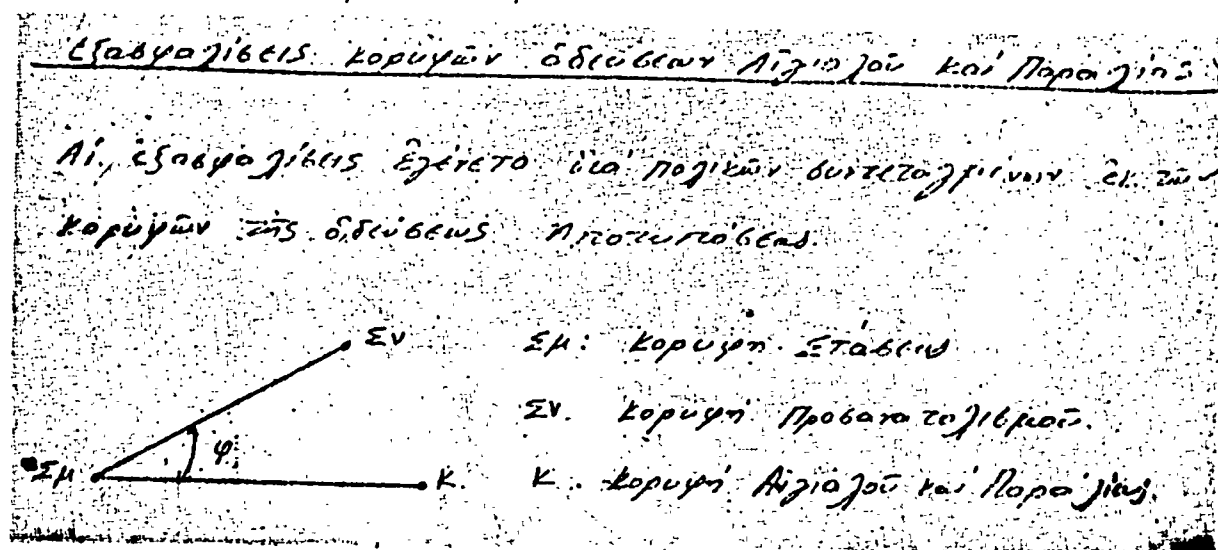 Ἐξασφαλίσεις κορυφῶν ὁδεύσεων Αἰγιαλοῦ καί Παραλίας
Αἱ ἐξασφαλίσεις ἐγένετο διά πολικῶν συντεταγμένων ἐκ τῶν
κορυφῶν τῆς ὁδεύσεως Ἀποτυπώσεως.
Σν
Σμ: Κορυφή Στάσεως
Σν. Κορυφή Προσανατολισμοῦ.
φ
Σμ
Κ.
Κ. Κορυφή Αἰγιαλοῦ καί Παραλίας.